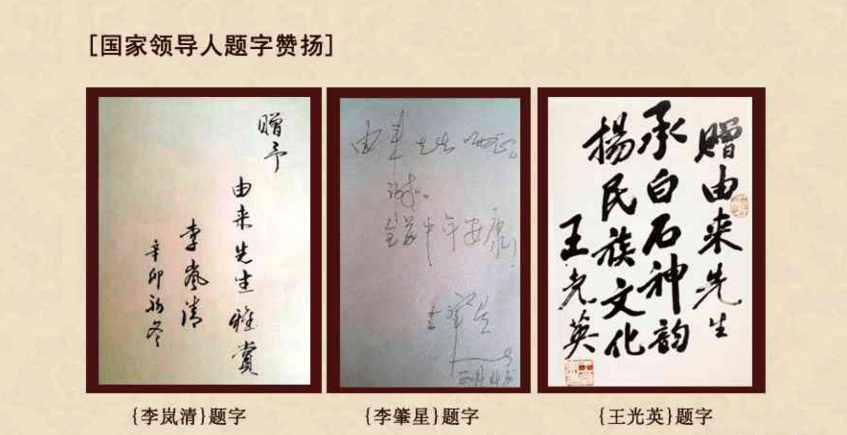 [国家领导人题字赞扬]
赠予
由来先生雅赏
李岚清
辛卯初冬
由来先生
全家牛年安康
贈由来先生
承白石神韵
揚民族文化
王光英
{李岚清}题字
{李肇星}题字
{王光英}题字